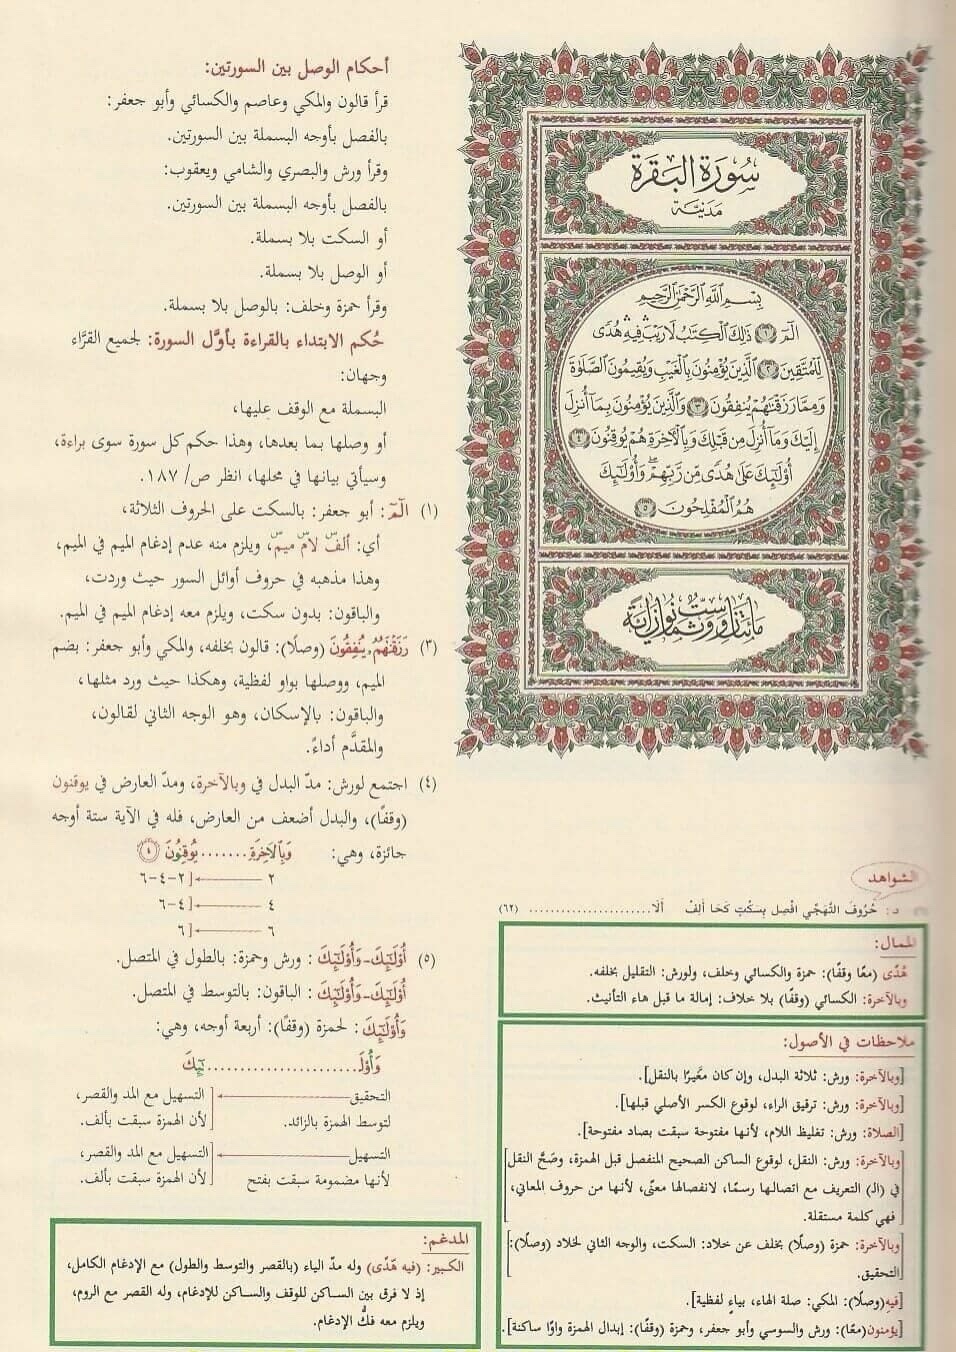 سُورَةُ البَقَرَةِ
مَدَنِيَّة
بِسْمِ اللَّهِ الرَّحْمَنِ الرَّحِيمِ
الٓمٓ ﴿١﴾ ذَٰلِكَ الْكِتَٰبُ لَا رَيْبَ ۛ فِيهِ ۛ هُدًى
لِلْمُتَّقِينَ ﴿٢﴾ الَّذِينَ يُؤْمِنُونَ بِالْغَيْبِ وَيُقِيمُونَ الصَّلَوٰةَ
وَمِمَّا رَزَقْنَٰهُمْ يُنفِقُونَ ﴿٣﴾ وَالَّذِينَ يُؤْمِنُونَ بِمَا أُنزِلَ
إِلَيْكَ وَمَا أُنزِلَ مِن قَبْلِكَ وَبِالْآخِرَةِ هُمْ يُوقِنُونَ ﴿٤﴾
أُوْلَٰٓئِكَ عَلَىٰ هُدًى مِّن رَّبِّهِمْ ۖ وَأُوْلَٰٓئِكَ
هُمُ الْمُفْلِحُونَ ﴿٥﴾
مائتان وست وثمانون آية
أحكام الوصل بين السورتين:
قرأ قالون والمكي وعاصم والكسائي وأبو جعفر:
بالفصل بأوجه البسملة بين السورتين.
وقرأ ورش والبصري والشامي ويعقوب:
بالفصل بأوجه البسملة بين السورتين.
أو السكت بلا بسملة.
أو الوصل بلا بسملة.
وقرأ حمزة وخلف: بالوصل بلا بسملة.
حُكم الابتداء بالقراءة بأوَّل السورة: لجميع القرَّاء
وجهان:
البسملة مع الوقف عليها،
أو وصلها بما بعدها، وهذا حكم كل سورة سوى براءة،
وسيأتي بيانها في محلها، انظر ص/ ١٨٧.
(١) الٓمٓ: أبو جعفر: بالسكت على الحروف الثلاثة،
أي: ألفْ س لامْ س ميمْ س، ويلزم منه عدم إدغام الميم في الميم،
وهذا مذهبه في حروف أوائل السور حيث وردت،
والباقون: بدون سكت، ويلزم معه إدغام الميم في الميم.
(٣) رَزَقْنَٰهُمُۥ يُنفِقُونَ (وصلًا): قالون بخلفه، والمكي وأبو جعفر: بضم
الميم، ووصلها بواو لفظية، وهكذا حيث ورد مثلها،
والباقون: بالإسكان، وهو الوجه الثاني لقالون،
والمقدَّم أداءً.
(٤) اجتمع لورش: مدّ البدل في وبالآخرة، ومدّ العارض في يوقنون
(وقفًا)، والبدل أضعف من العارض، فله في الآية ستة أوجه
جائزة، وهي: وَبِالَاخِرَةِ.......يُوقِنُونَ ﴿٤﴾
٢ ← [ ٢-٤-٦
٤ ← [ ٤-٦
٦ ← [ ٦
(٥) أُوْلَٰٓئِكَ-وَأُوْلَٰٓئِكَ: ورش وحمزة: بالطول في المتصل.
أُوْلَٰٓئِكَ-وَأُوْلَٰٓئِكَ: الباقون: بالتوسط في المتصل.
وَأُوْلَٰٓئِكَ: لحمزة (وقفًا): أربعة أوجه، وهي:
وَأُوْلَـ.......................ـٰٓئِكَ
التحقيق ← التسهيل مع المد والقصر،
لتوسط الهمزة بالزائد. لأن الهمزة سبقت بألف.
التسهيل ← التسهيل مع المد والقصر،
لأنها مضمومة سبقت بفتح لأن الهمزة سبقت بألف.
الشواهد
د: حُرُوفَ التَّهَجِّي افْصِل بِسَكْتٍ كَحَا أَلِفْ أَلَا....................... (٦٢)
الممال:
هُدًى (معًا وقفًا): حمزة والكسائي وخلف، ولورش: التقليل بخلفه.
وبالآخرة: الكسائي (وقفًا) بلا خلاف: إمالة ما قبل هاء التأنيث.
ملاحظات في الأصول:
[وبالآخرة: ورش: ثلاثة البدل، وإن كان مغَيرًا بالنقل].
[وبالآخرة: ورش: ترقيق الراء، لوقوع الكسر الأصلي قبلها].
[الصلاة: ورش: تغليظ اللام، لأنها مفتوحة سبقت بصاد مفتوحة].
[وبالآخرة: ورش: النقل، لوقوع الساكن الصحيح المنفصل قبل الهمزة، وصَحَّ النقل
في (الـ) التعريف مع اتصالها رسمًا، لانفصالها معنًى، لأنها من حروف المعاني،
فهي كلمة مستقلة.]
[وبالآخرة: حمزة (وصلًا) بخلف عن خلاد: السكت، والوجه الثاني لخلاد (وصلًا):
التحقيق.]
[فيهِ(وصلًا): المكي: صلة الهاء، بياءٍ لفظية].
[يؤمنون(معًا): ورش والسوسي وأبو جعفر، وحمزة (وقفًا): إبدال الهمزة واوًا ساكنة].
المدغم:
الكبير: (فيه هّدًى) وله مدّ الياء (بالقصر والتوسط والطول) مع الإدغام الكامل،
إذ لا فرق بين الساكن للوقف والساكن للإدغام، وله القصر مع الروم،
ويلزم معه فكُّ الإدغام.